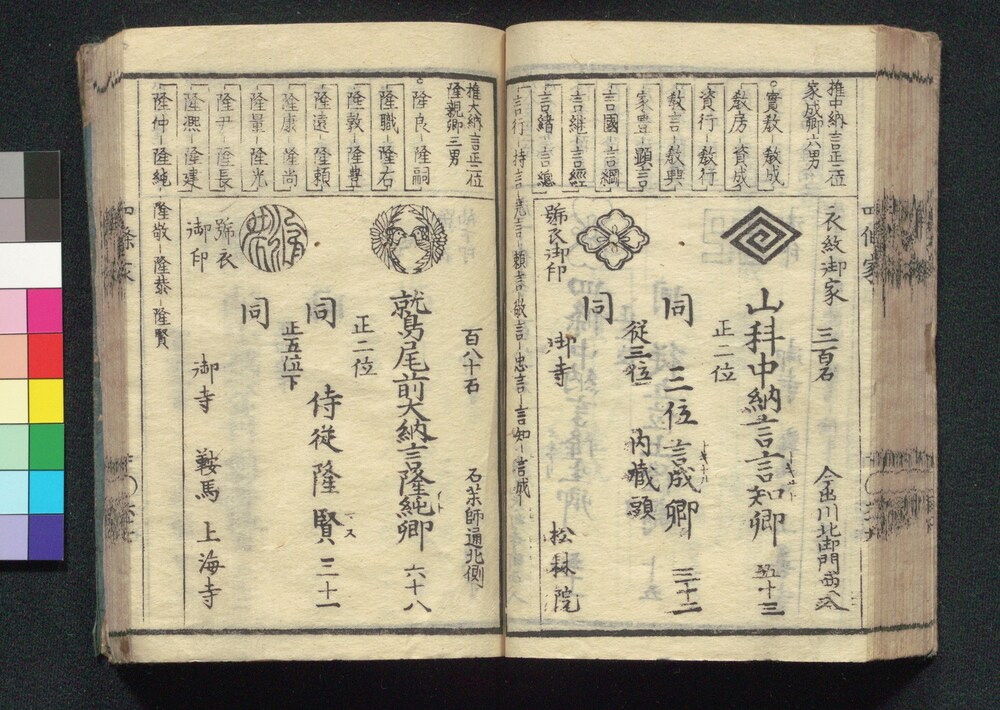 推中納言正二位
家成卿六男
實教 教成
教房 資成
資行 教行
教言 教興
家豊 顕言
言國 言綱
言継 言經
言緒 言總
言行 持言 言 頼言 敬言 忠言 言知 言成
衣紋御家
三百石
山科中納言言知卿
正二位
五十三
同
三位言成卿
三十二
従三位
内蔵頭
同
號衣御印
御寺
松林院
推大納言正二位
隆親卿三男
隆良 隆嗣
隆職 隆右
隆敦 隆豊
隆遠 隆頼
隆康 隆尚
隆量 隆光
隆尹 隆長
隆凞 隆建
隆仲 隆純
隆敬 隆恭 隆賢
百八十石
石茶師通北側
鷲尾前大納言隆純卿
六十八
正二位
同
侍従隆賢
三十一
正五位下
同
號衣
御印
御寺
鞍馬
上海寺